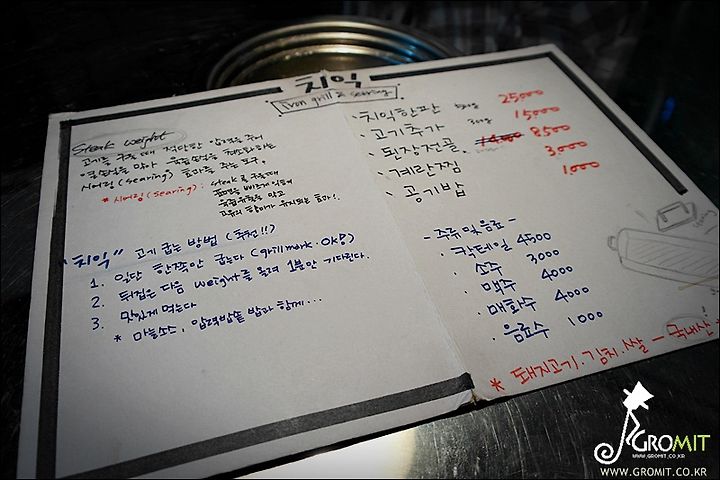 치익
iron grill & searing
Steak weight
고기를 구울 때 적당한 압력을 주어
열손실을 막아 육즙손실을 최소화하는
시어링(searing) 효과를 주는 도구.
* 시어링(searing) : steak를 구울때
표면을 빠르게 익혀
육즙유출을 막고
고유의 향미가 유지되는 효과!
"치익" 고기 굽는 방법 (추천!!)
1. 일단 한쪽만 굽는다 (grill mark·OK!)
2. 뒤집은 다음 weight를 올려 1분만 기다린다.
3. 맛있게 먹는다
* 마늘소스, 압력밥솥 밥과 함께...
· 치익한판 25000
· 고기추가 300g 15000
· 된장전골 8500
· 계란찜 3000
· 공기밥 1000
- 주류및음료 -
· 칵테일 4500
· 소주 3000
· 맥주 4000
· 매화수 4000
· 음료수 1000
* 돼지고기.김치.쌀 - 국내산 *
GROMIT
WWW.GROMIT.CO.KR
WWW.GROMIT.CO.KR